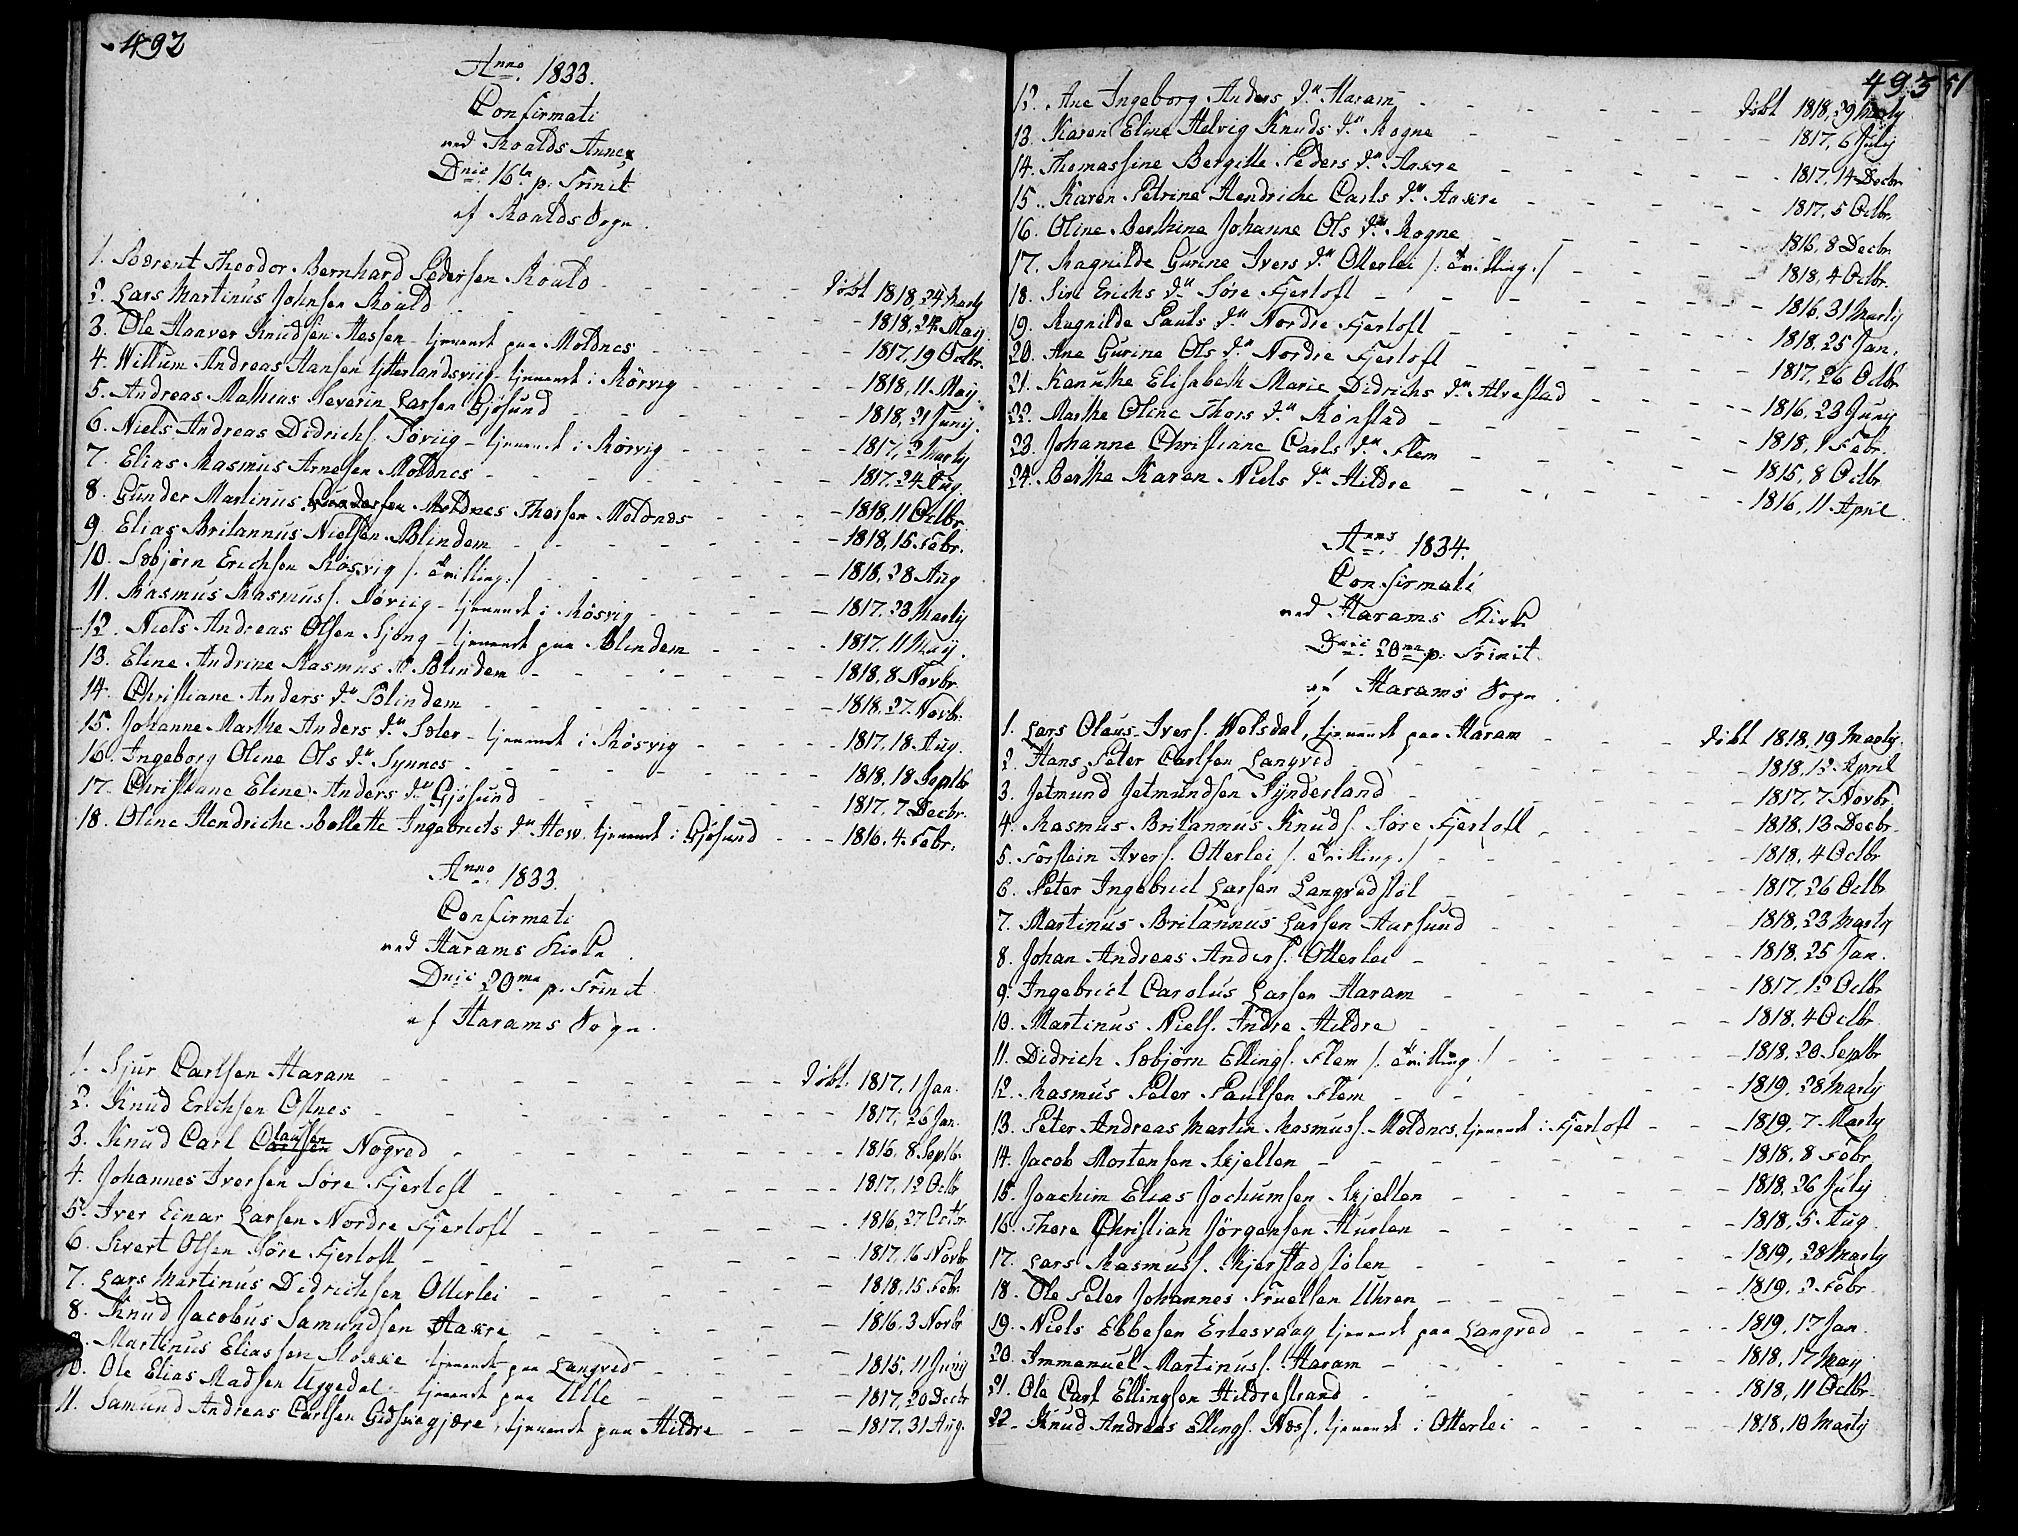 492
Anno 1833.
Confirmati
ved Roalds Annex
Dnic 16ta p. Trinit
af Roalds Sogn.
1. Bærent Theodor Bernhard Pedersen Roald - - - døbt 1818, 24 Martj
2. Lars Martinus Johnsen Roald - - - 1818, 24 Maj
3. Ole Haaver Knudsen Hessen - tjenende paa Moldnes - - - 1817, 19 Octbr.
4. Willum Andreas Hansen Ytterlandsviig tjenende i Rørvig - - - 1818, 11 Maj.
5. Andreas Mathias Severin Larsen Gjøsund - - - 1818, 21 Junij.
6. Niels Andreas Didrichs. Søviig - tjenende i Rørvig - - - 1817, 2 Martj
7. Elias Rasmus Arnesen Moldnes - - - 1817. 24 Aug.
8. Gunder Martinus Gundersen Moldnes Thorsen Moldnes - - - 1818, 11 Octbr.
9. Elias Britannus Nielsen Blindem - - - 1818, 15 Febr.
10. Sæbjørn Erichsen Røsvig /: Tvilling :/ - - - 1818, 28 Aug
11. Rasmus Rasmuss. Søviig - tjenende i Røsvig - - - 1817. 23 Martj
12. Niels Andreas Olsen Sjong - tjenende paa Blindem - - - 1817. 11 Maj.
13. Eline Andrine Rasmus dr Blindem - - - 1818, 8 Novbr.
14. Christiane Anders dr Blindem - - - 1818. 27. Novbr.
15. Johanne Marthe Anders dr Sæter - tjenende i Røsvig - - - 1817, 18 Aug.
16. Ingeborg Oline Ols dr Synnes - - - 1818. 18 Septbr
17. Christiane Eline Anders dr Gjøsund - - - 1817. 7 Decbr.
18. Oline Hendriche Bollette Ingebricts dr How. tjenende i Gjøsund - - - 1816. 4. Febr.
Anno 1833.
Confirmati
ved Harams Kirke
Dnic 20ma p. Trinit
af Harams Sogn.
1. Sjur Carlsen Haram - - - døbt. 1817, 1 Jan.
2. Knud Erichsen Ostnes - - - 1817, 26 Jan.
3. Knud Carl Carlsen Claussen Nogved - - - 1816, 8 Septbr.
4. Johannes Iversen Søre Fjertoft - - - 1817, 12 Octbr
5. Iver Einar Larsen Nordre Fjertoft - - - 1816, 27 Octbr.
6. Sivert Olsen Søre Fjertoft - - - 1817. 16 Novbr
7. Lars Martinus Didrichsen Otterlei - - - 1818, 15 Febr.
8. Knud Jacobus Samundsen Aakre - - - 1816. 3 Novbr
9. Martinus Eliassen tjenende paa Langved - - - 1815. 11 Junij
10. Ole Elias Madsen Uggedal - tjenende paa Ulle - - - 1817, 20 Decbr
11. Samund Andreas Carlsen Gidskegjære, tjenende paa Hildre - - - 1817. 31 Aug.
493
51
12. Ane Ingeborg Anders dr Haram - - - døbt 1818, 29 Martj
13. Karen Eline Helvig Knuds dr Rogne - - - 1817, 6 Julij
14. Thomassine Bergitte Peders dr Aakre - - - 1817, 14 Decbr
15. Karen Petrine Hendriche Carls dr Aakre - - - 1817, 5 Octbr.
16. Oline Berthine Johanne Ols dr Rogne - - - 1816, 8 Decbr.
17. Ragnilde Gurine Ivers dr Otterlei /: Tvilling :/ - - - 1818, 4 Octbr.
18. Siri Erichs dr Søre Fjertoft - - - 1816, 31 Martj
19. Ragnilde Pauls dr Nordre Fjertoft - - - 1818. 25 Jan.
20. Ane Gurine Ols dr Nordre Fjertoft - - - 1817, 26 Octbr
21. Kanuthe Elisabeth Marie Didrichs dr Alvestad - - - 1816, 23 Junij
22. Marthe Oline Thors dr Rønstad - - - 1818, 1 Febr.
23. Johanne Christiane Carls dr Flem - - - 1815, 8 Octbr.
24. Berthe Karen Niels dr Hildre - - - 1816, 11 April.
Anno 1834.
Confirmati
ved Harams Kirke
Dnic 20ma p. Trinit.
af Harams Sogn
1. Lars Olaus Ivers. Wolsdal, tjenende paa Haram - - - døbt 1818, 19 Martj
2. Hans Peter Carlsen Langved - - - 1818, 12 April
3. Jetmund Jetmundsen Synderland - - - 1817. 7 Novbr.
4. Rasmus Britannus Knuds. Søre Fjertoft - - - 1818. 13 Decbr.
5. Torstein Ivers. Otterlei /: Tvilling :/ - - - 1818, 4 Octbr
6. Peter Ingebrict Larsen Langvedstøl - - - 1817, 26 Octbr
7. Martinus Britannus Larsen Aursund - - - 1818, 23 Martj
8. Johan Andreas Anders. Otterlei - - - 1818, 25 Jan.
9. Ingebrict Carolus Larsen Haram - - - 1817, 12 Octbr
10. Martinus Niels. Indre Hildre - - - 1818. 4 Octbr.
11. Didrich Sæbjørn Ellings. Flem /: Tvilling :/ - - - 1818, 20 Septbr
12. Rasmus Peter Paulsen Flem - - - 1819. 28 Martj
13. Peter Andreas Martin Rasmuss. Moldnes, tjenende i Fjertoft - - - 1819, 7 Martj
14. Jacob Mortensen Skjelten - - - 1818, 8 Febr
15. Joachim Elias Jochumsen Skjelten - - - 1818, 26 Julij
16. Thore Christian Jörgensen Hurlen - - - 1818, 5 Aug.
17. Lars Rasmuss. Kjerstadstölen - - - 1819, 28 Martj
18. Ole Peter Johannes Truelsen Uhren - - - 1819, 2 Febr
19. Niels Ebbesen Ertesvaag tjenende paa Langved - - - 1819, 17 Jan.
20. Immanuel Martinuss. Haram - - - 1818, 17 Maj
21. Ole Carl Ellingsen Hildrestrand - - - 1818, 11 Octbr.
22. Knud Andreas Ellings. Næss. tjenende i Otterlei - - - 1818, 10 Martj